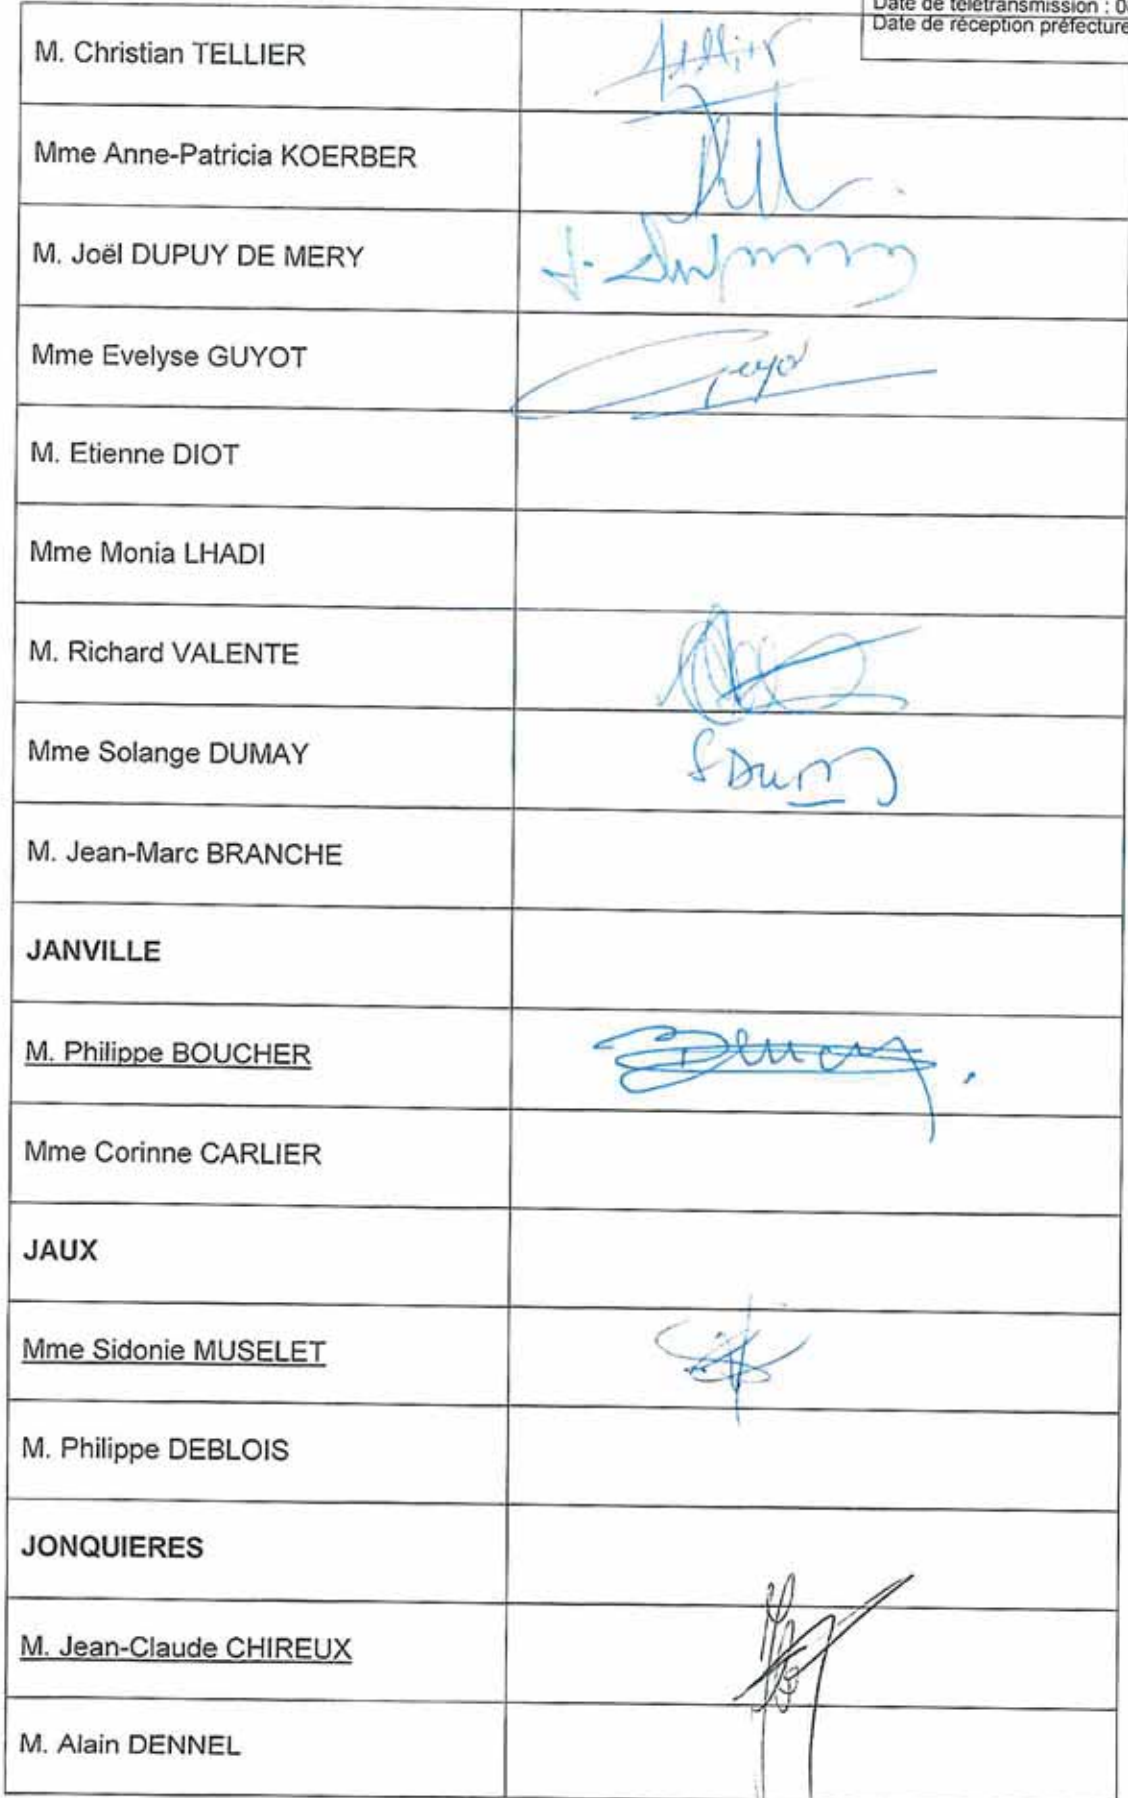 Date de télétransmission : 0
Date de réception préfecture
M. Christian TELLIER
Tellier
Mme Anne-Patricia KOERBER
M. Joël DUPUY DE MERY
Mme Evelyse GUYOT
Guyot
M. Etienne DIOT
Mme Monia LHADI
M. Richard VALENTE
Mme Solange DUMAY
M. Jean-Marc BRANCHE
JANVILLE
M. Philippe BOUCHER
Mme Corinne CARLIER
JAUX
Mme Sidonie MUSELET
M. Philippe DEBLOIS
JONQUIERES
M. Jean-Claude CHIREUX
M. Alain DENNEL